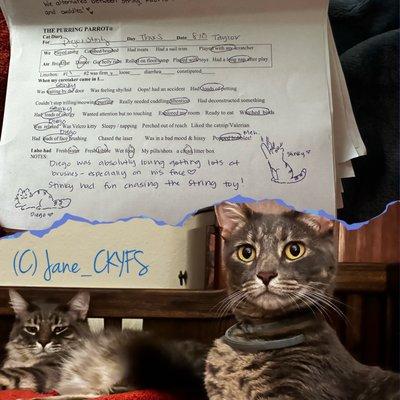 We alternated between string
and cuddles! ♡
THE PURRING PARROT®
Cat Diary
For Diego/Stinky Day Thurs Date 8/10 Taylor
We Played string Cuddled/brushed Had treats Had a nail trim Played with my scratcher
Ate Breakfast Dinner Got belly rubs Rolled on floor/lamp Played with toys Had a long nap after play
Litterbox: #1 3 #2 was firm 4 loose diarrhea constipated
When my caretaker came in I...
Stinky
Was waiting by the door Was feeling shy/hid Oops! had an accident Had loads of petting
Couldn't stop trilling/meowing/purring Really needed cuddling/attention Had deconstructed something
Stinky
Had loads of energy Wanted attention but no touching Explored my room Ready to eat Watched birds
Diego
Was relaxed Was Velcro kitty Sleepy / napping Perched out of reach Liked the catnip/Valerian
Diego Meh.
Had loads of face Chased the laser Was in a bad mood & hissy Popped bubbles!
I also had Fresh water Fresh kibble Wet food My pills/shots a clean litter box
NOTES
Diego was absolutely loving getting lots of
brushes - especially on his face ♡
Stinky had fun chasing the string toy!
Stinky ♡
Diego ♡
(C) Jane_CKYFS